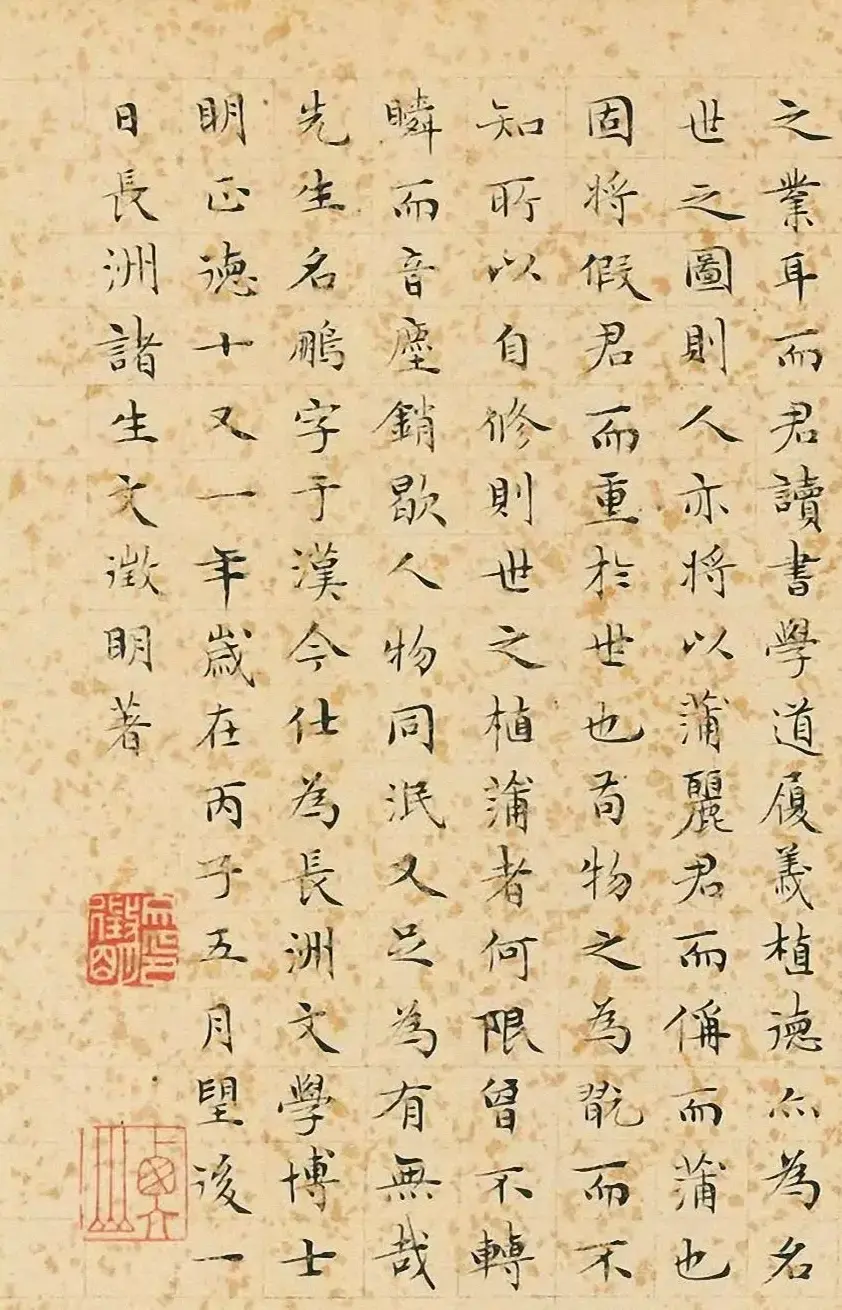 之業耳而君讀書學道履義植德亦為名
世之圖則人亦將以蒲麗君而偁而蒲也
固將假君而重於世也苟物之為翫而不
知所以自修則世之植蒲者何限曾不轉
瞬而音塵銷歇人物同泯又足為有無哉
先生名鵬字于漢今仕為長洲文學博士
明正德十又一年歲在丙子五月朢後一
日長洲諸生文徵明著
徵明